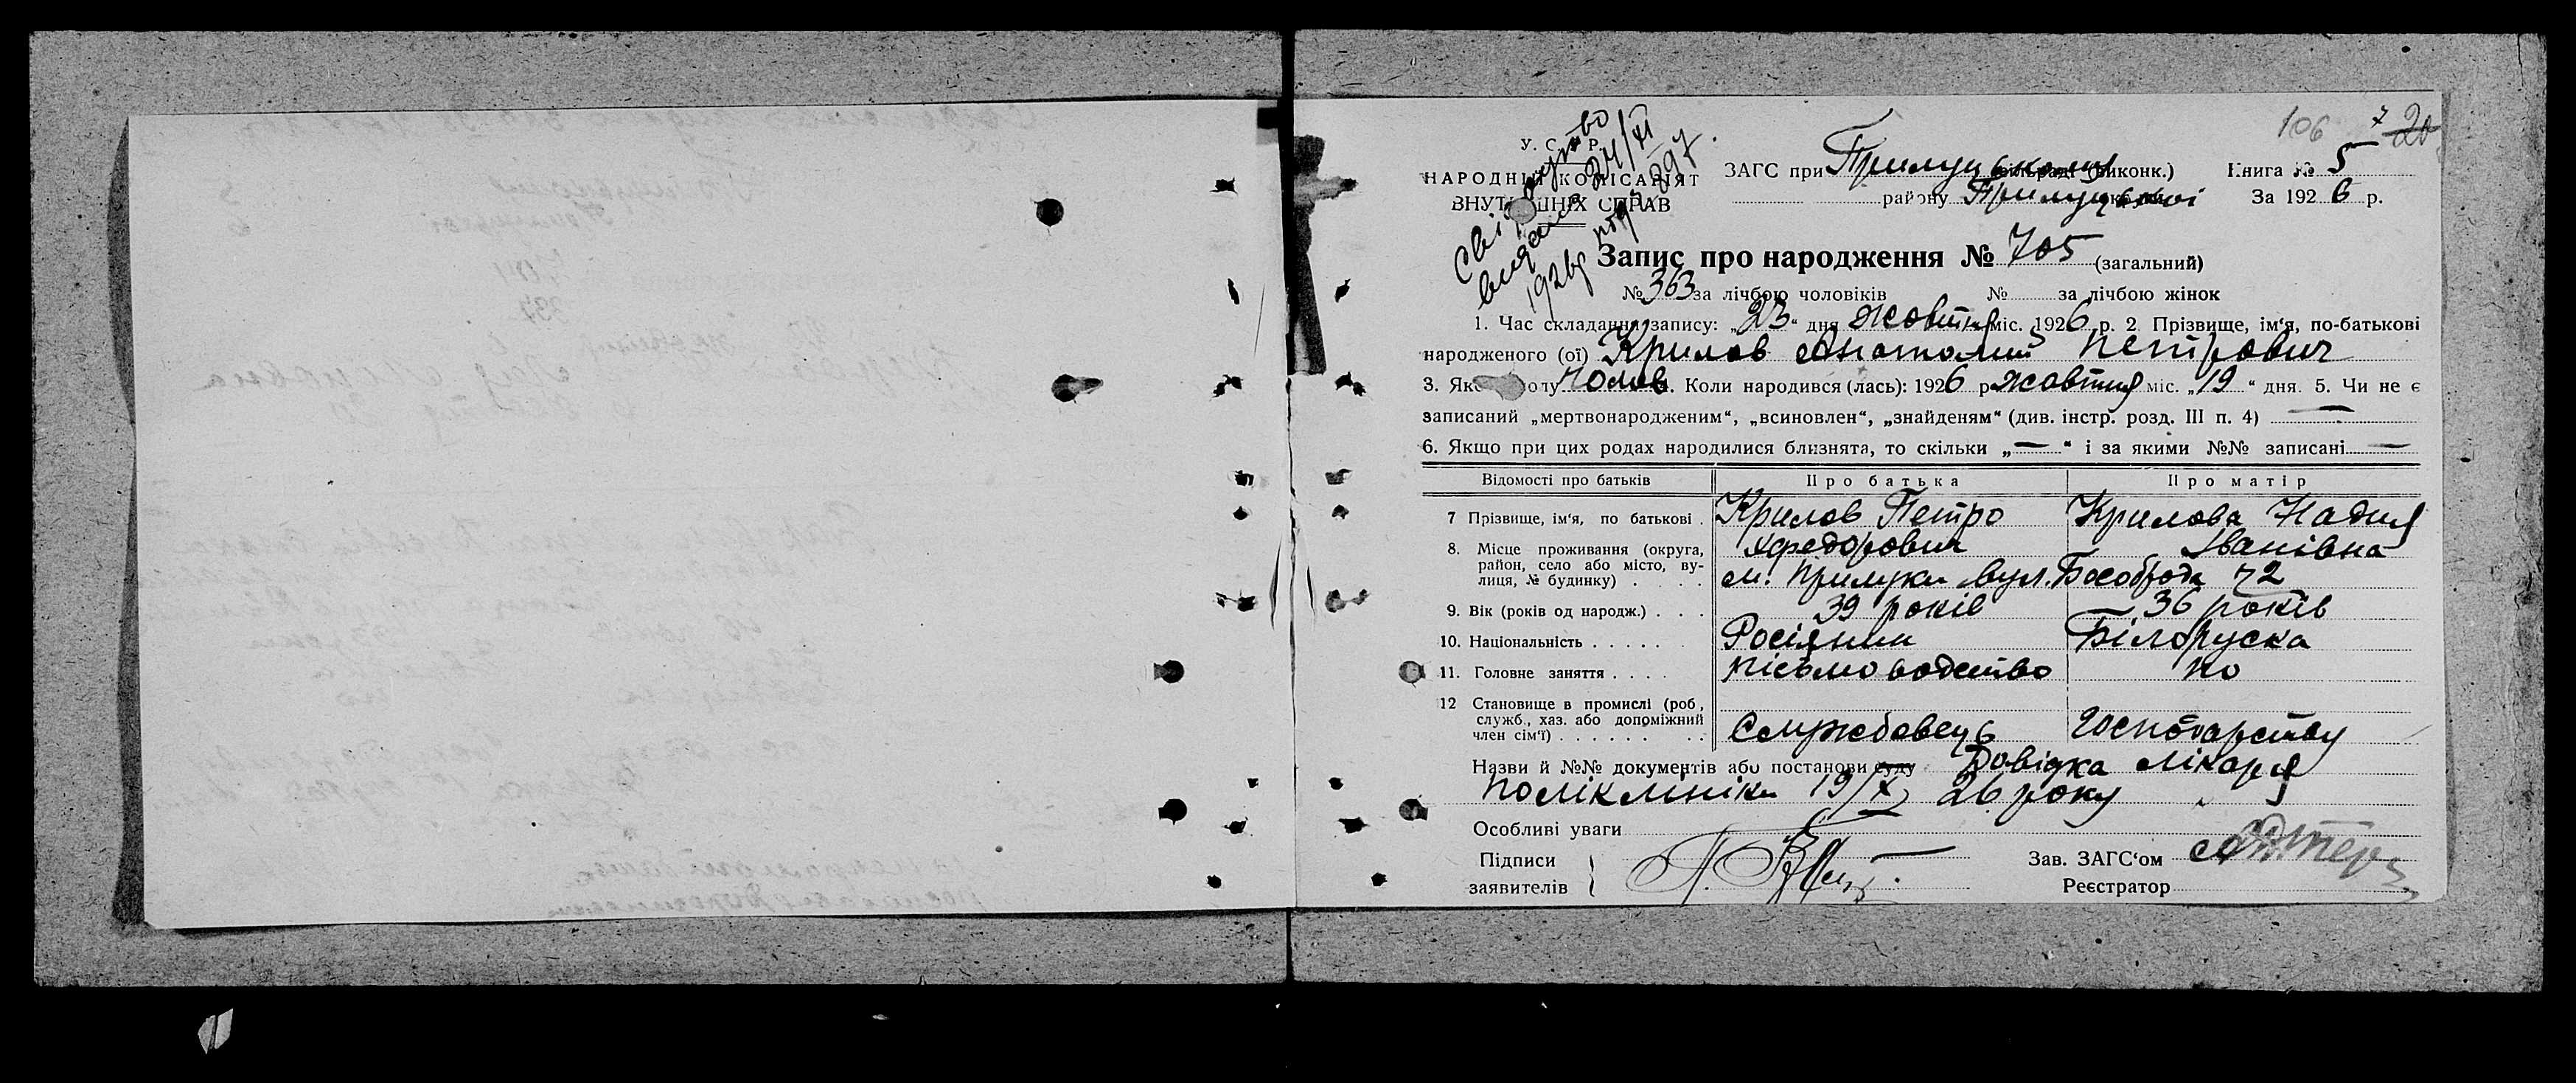 106 7 20
У. С. Р. Р.
НАРОДНІЙ КОМІСАРІЯТ
ВНУТРІШНІХ СПРАВ
Свідоцтво
видано 24/XI
1926р під № 297.
ЗАГС при Прилуцькому міськраді (виконк.) Книга № 5
району Прилуцької округи За 1926 р.
Запис про народження № 705 (загальний)
№ 363 за лічбою чоловіків № за лічбою жінок
1. Час складання запису: „23“ дня жовтня міс. 1926 р. 2. Прізвище, ім‘я, по-батькові
народженого (ої) Крилов Анатолий Петрович
3. Якого полу Чолов. 4. Коли народився (лась): 1926 р. жовтня міс. „19“ дня. 5. Чи не є
записаний „мертвонародженим“, „всиновлен“, „знайденям“ (див. інстр. розд. III п. 4) —
6. Якщо при цих родах народилися близнята, то скільки „—“ і за якими №№ записані —
Відомості про батьків Про батька Про матір
7 Прізвище, ім‘я, по батькові . Крилов Петро Крилова Надия
Хфедорович Іванівна
8. Місце проживання (округа, район, село або місто, вулиця, № будинку) . . . . м. Прилуки вул. Бособрода 72
9. Вік (років од народж.) . . . 39 років 36 років
10. Національність . . . . . . Росіянин Білоруска
11. Головне заняття . . . . Пісьмоводство По
12 Становище в промислі (роб, служб., хаз. або допоміжний член сім‘ї) . . . . . . . . Службовець Господарству
Назви й №№ документів або постанови суду Довідка лікаря
поліклініки 19/X 26 року
Особливі уваги
Підписи
заявителів
Зав. ЗАГС‘ом
Реєстратор